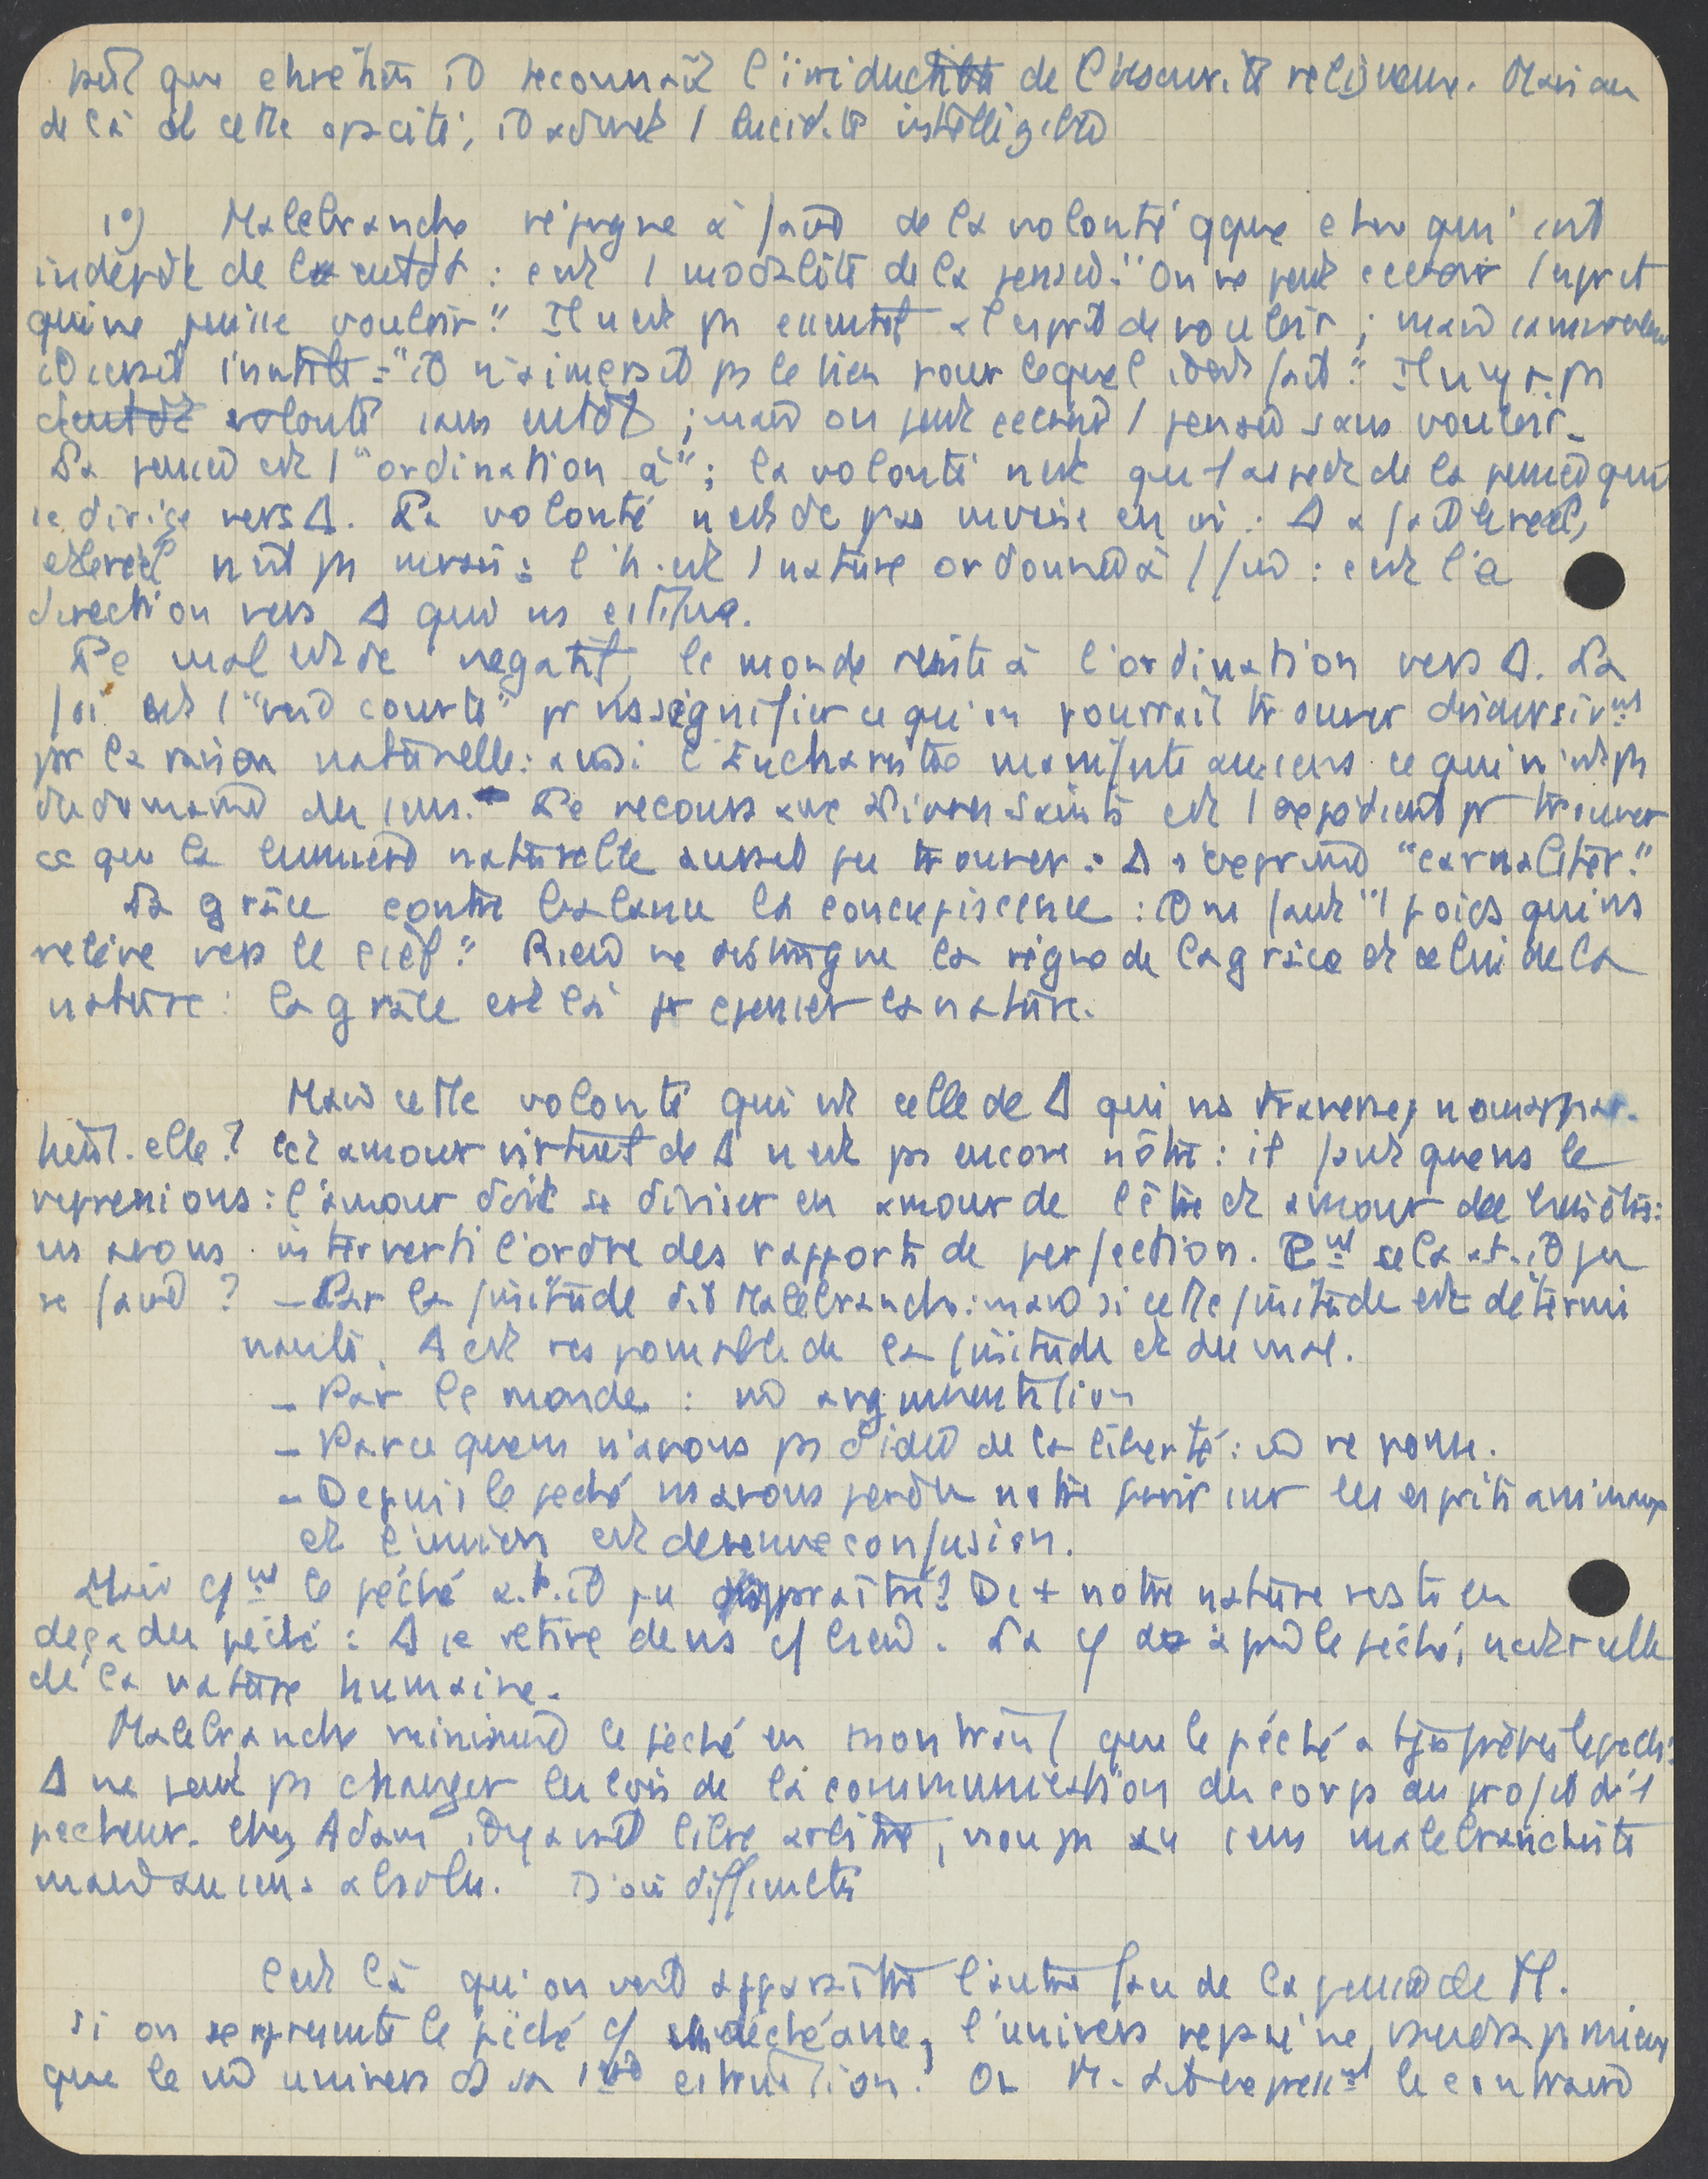 que chrétien il reconnaît l'irréduc de l'obscurité religieuse. Mais au
delà de cette opacité, il admet 1 lucidité intelligible
1°) Malebranche répugne à faire de la volonté qque chose qui soit
indépdt de l' : c'est 1 modalité de la pensée. "On ne peut cevoir 1 esprit
qui ne puisse vouloir." Il n'est ps essentiel à l'esprit de vouloir ; mais sans vouloir
il serait inutile : "il n'aimerait ps le bien pour lequel il est fait." Il n'y a ps
volonté sans ; mais on peut cevoir 1 pensée sans vouloir.
La pensée est 1 "ordination à" ; la volonté n'est qu'1 aspect de la pensée qui
se dirige vers Δ. La volonté n'est dc pas mauvaise en soi : Δ a fait le réel,
et le réel n'est ps mauvais : l'h. est 1 nature ordonnée à 1 fin : c'est la
direction vers Δ qui ns constitue.
Le mal est dc négatif, le monde résiste à l'ordination vers Δ. La
foi est 1 "voie courte" pr ns signifier ce qu'on pourrait trouver discursivmt
par la raison naturelle : aussi l'Eucharistie manifeste aux sens ce qui n'est ps
du domaine des sens. Le recours aux Livres Saints est 1 expédient pr trouver
ce que la lumière naturelle aurait pu trouver : Δ s'exprime "carnaliter."
La grâce contre balance la concupiscence : il ns faut "1 poids qui ns
relève vers le ciel." Rien ne distingue le règne de la grâce et celui de la
nature : la grâce est là pr la nature.
Mais cette volonté qui est celle de Δ qui ns traverse, nous appar-
tient-elle ? Cet amour virtuel de Δ n'est ps encore nôtre : il faut que ns le
reprenions : l'amour doit se diviser en amour de l'être et amour du bien être :
ns avons interverti l'ordre des rapports de perfection. Cmt cela a-t-il pu
se faire ? – Par la finitude dit Malebranche : mais si cette finitude est détermi
nante, Δ est responsable de la finitude et du mal.
– Par le monde : m̂ argumentation
– Parce que ns n'avons ps d'idée de la liberté : m̂ réponse.
– Depuis le péché ns avons perdu notre pvoir sur les esprits animaux
et l'union est devenue confusion.
Mais cmt le péché a-t-il pu apparaître ? De + notre nature reste en
deçà du péché : Δ se retire de ns . La après le péché, n'est + celle
de la nature humaine.
Malebranche minimise le péché en montrant que le péché a tjs
Δ ne peut ps changer les lois de la communication du corps au profit d'1
pécheur. Chez Adam, il y avait libre arbitre, non ps au sens malebranchiste
mais au sens absolu. D'où difficulté
C'est là qu'on voit apparaître l'autre face de la pensée de M.
si on se représente le péché déchéance, l'univers réparé ne vaudra ps mieux
que le m̂ univers ds sa 1ère constitution. Or M. dit expressmt le contraire